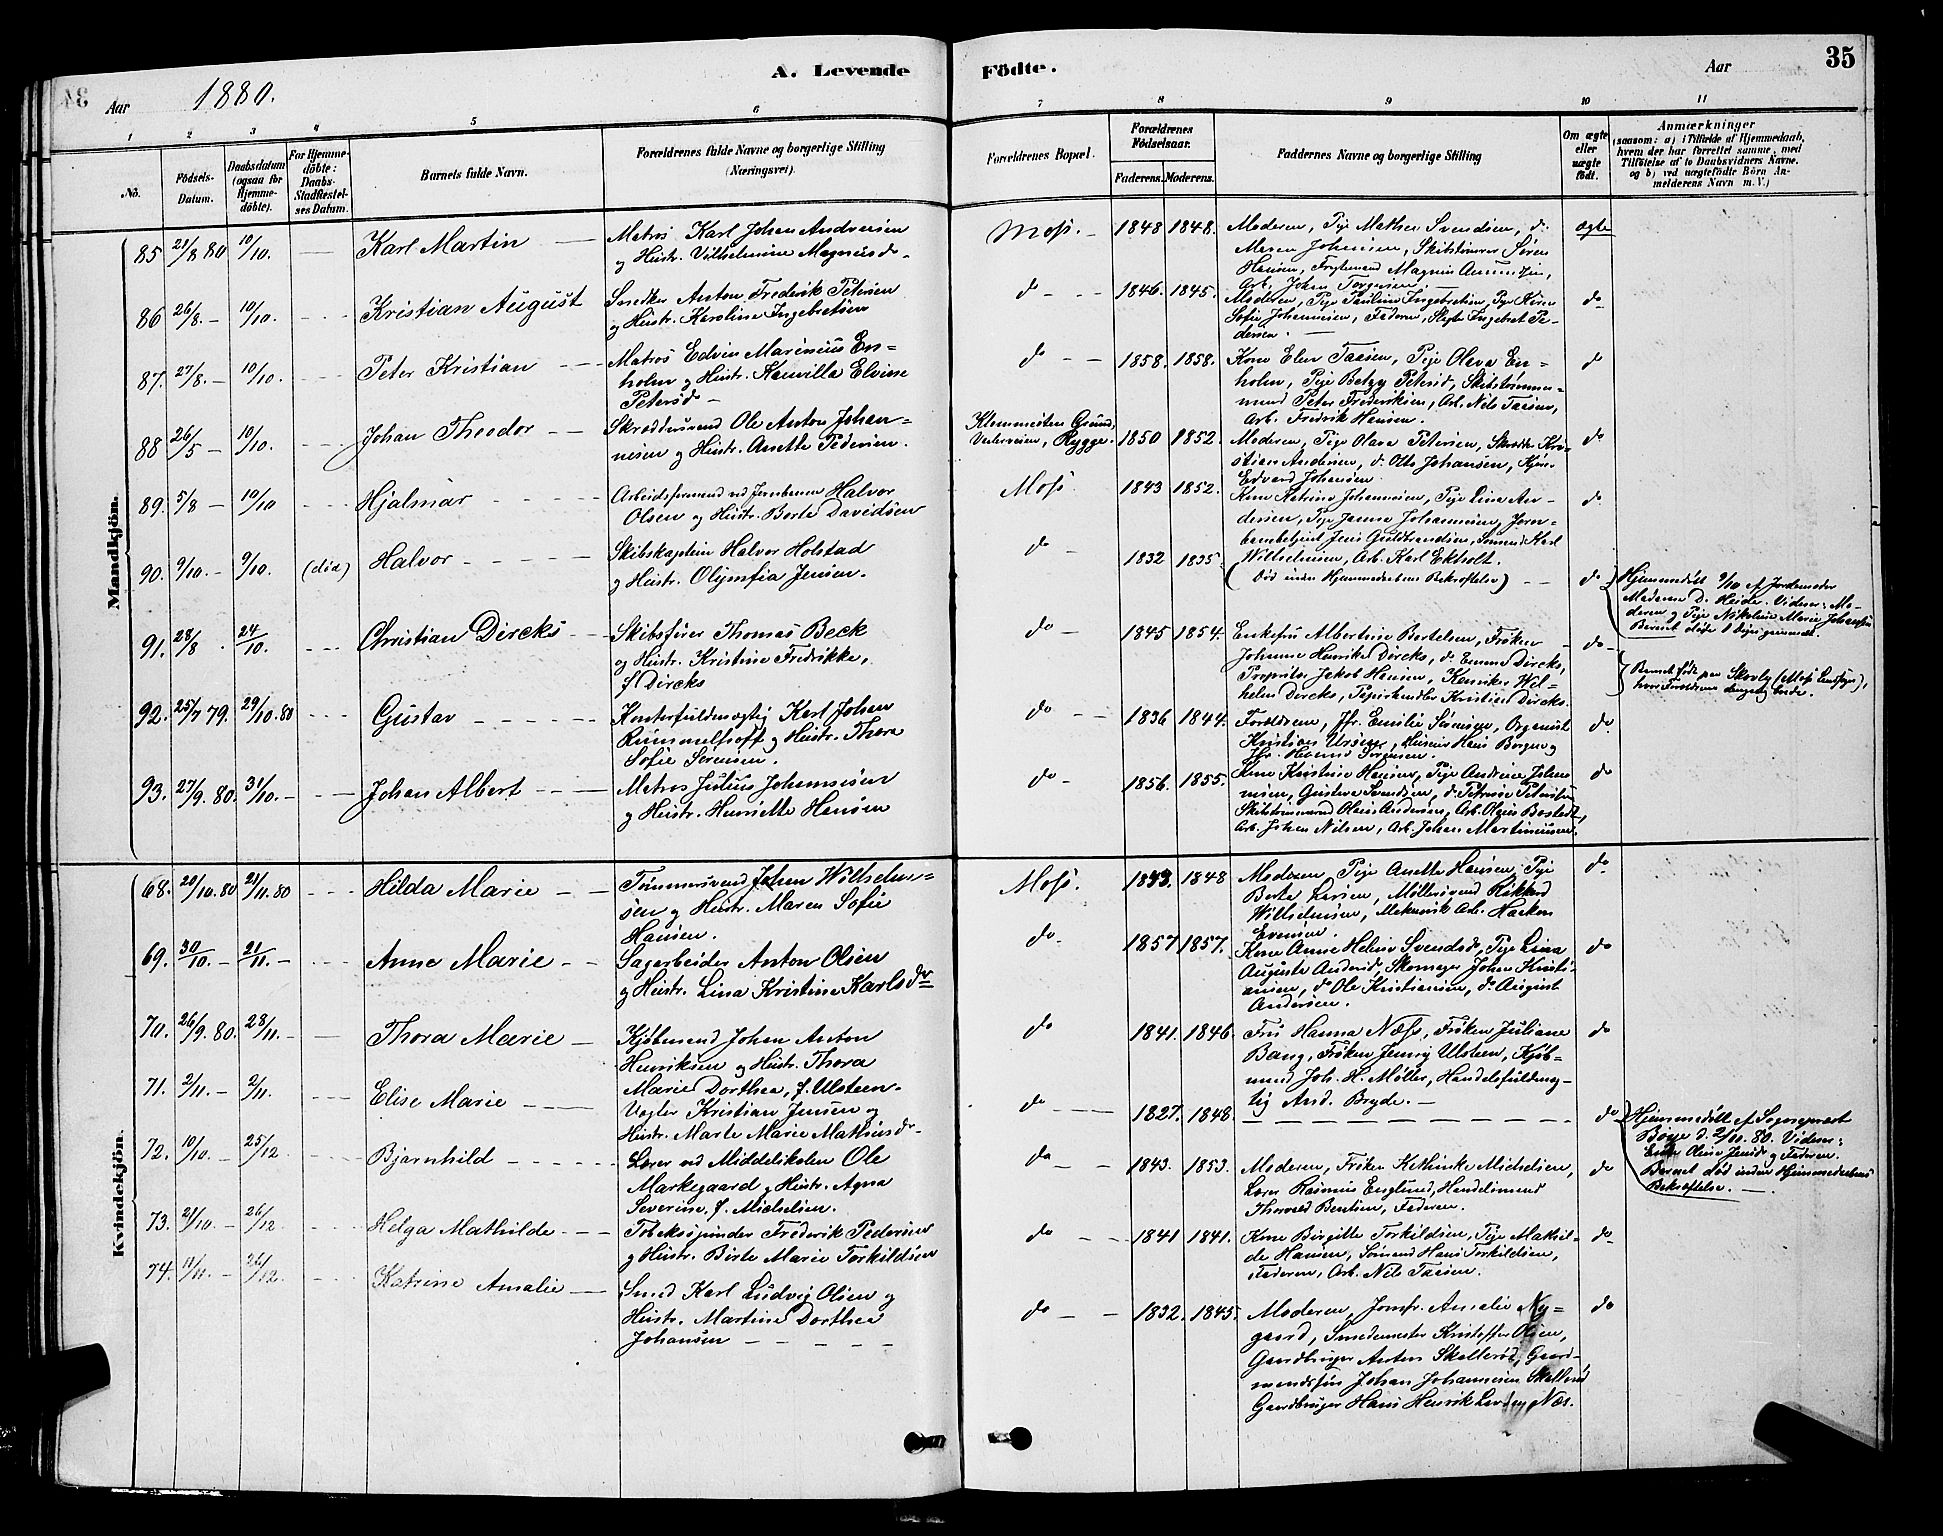 34
Aar 1880.
A. Levende
Födte.
Aar
35
1 2 3 4 5 6
7 8 9 10 11
No.
Födsels-
Datum.
Daabsdatum
(ogsaa för
Hjemme-
döbte).
For Hjemme-
döbte:
Daabs-
Stadfæstel-
ses Datum.
Barnets fulde Navn.
Forældrenes fulde Navne og borgerlige Stilling
(Næringsvei).
Forældrenes Bopæl.
Forældrenes
Födselsaar.
Faderens. Moderens.
Faddernes Navne og borgerlige Stilling
Om ægte
eller
uægte
födt.
Anmærkninger
(saasom: a) i Tilfælde af Hjemmedaab,
hvem der har forrettet samme, med
Tilföielse af to Daabsvidners Navne,
og b) ved uægtefödte Börn An-
melderens Navn m. V.)
Mandkjön.
85 21/8 80 10/10. Karl Martin
Matros Karl Johan Andersen
og Hustr. Vilhelmine Magnusd.
Moss. 1848 1848.
Moderen, Pige Mathea Svendsen, do
Maren Johansen, Skibstømrer Søren
Hansen, Magnus
Arb. Johan Torgersen.
ægte
86 26/8. 10/10. Kristian August
Snedker Anton Frederik Petersen
og Hustr. Karoline Ingebretsen
do 1846. 1845.
Moderen, Pige Pauline Ingebretsen, Pige
Sofie Johannesen, Faderen, Ingebret Pe-
dersen.
do
87. 27/8. 10/10. Peter Kristian
Matros Edvin Marinius En-
holm og Hustr. Kamilla Elvine
Petersd
do 1858. 1858.
Kone Elen Taasen, Pige Olava En-
holm, Pige Betzy Petersd, Skibstømmer-
mand Peter Frederiksen, Arb. Nils Taasen,
Arb. Fredrik Hansen.
do
88 26/5 10/10. Johan Theodor
Skræddersvend Ole Anton Johan-
nesen og Hustr. Anette Pedersen.
Grund,
Rygge. 1850 1852.
Moderen, Pige Olava Petersen, Skrædder Kri-
stian Andersen, do Otto Johansen,
Edvard Johansen.
do
89. 5/8 10/10 Hjalmar
Arbeidsformand ved Jernbanen Halvor
Olsen og Hustr. Berte Davidsen
Moss. 1843 1852.
Kone Katrine Johannesen, Pige Lina An-
dersen, Pige Johannesen, Jern-
banebetjent Jens Guldbrandsen, Karl
Wilhelmsen, Arb. Karl Ekholt.
do
90. 9/10. 9/10. (død) Halvor
Skibskaptein Halvor Holstad
og Hustr. Olymfia Jensen.
do 1832 1835.
(Død inden Hjemmedaabens Bekræftelse)
do
Hjemmedøbt 9/10 af Jordemoder
Madame D. Heide. Vidner: Mo-
deren og Pige Nikoline Marie Johansen
91. 28/8 24/10. Christian Dircks
Skibsfører Thomas Beck
og Hustr. Kristine Fredrikke,
f. Dircks
do 1845 1854.
Enkefru Albertine Bertelsen, Frøken
Johanne Henrike Dircks, do Emma Dircks,
Proprietær Jakob Hansen, Wil-
helm Dircks, Papirhandler Kristian Dircks.
do
Barnet født paa Skovly (Moss Landsogn),
hvor Forældrene
92. 25/7 79. 29/10. 80 Gustav
Kontorfuldmægtig Karl Johan
Rummelhoff og Hustr. Thora
Sofie Sørensen.
do 1836 1844.
Forældrene, Jfr. Emilie Sørensen, Organist
Kristian Hans Borgen og
Jfr. Hanna Sørensen.
do
93. 27/9. 80. 31/10. Johan Albert
Matros Julius Johannesen
og Hustr. Henriette Hansen
do 1856. 1855.
Kone Kristine Hansen, Pige Andrine Johan-
nesen, Gustava Svendsen, do Petrine
Skibstømmermand Olaus Andersen, Arb. Olaus
Arb. Johan Nilsen, Arb. Johan Martiniusen.
do
Kvindekjön.
68. 20/10. 80 21/11. 80 Hilda Marie
Tømmersvend Johan Wilhelm-
sen og Hustr. Maren Sofie
Hansen.
Moss. 1843. 1848
Moderen, Pige Anette Hansen, Pige
Berte Larsen, Møllersvend Rikkard
Wilhelmsen, Mekanisk Arb. Haakon
Evensen.
do
69. 30/10. 21/11. Anna Marie
Sagarbeider Anton Olsen
og Hustr. Lina Kristine Karlsdr
do 1857 1857.
Kone Anne Helene Svendsd, Pige Lina
Augusta Andersd, Skomager Johan Kristi-
ansen, do Ole Kristiansen, do August
Andersen.
do
70. 26/9. 80. 28/11. Thora Marie
Kjøbmand Johan Anton
Henriksen og Hustr. Thora
Marie Dorthea, f. Ulsteen.
do 1841. 1846.
Fru Hanna Næss, Frøken Juliane
Bang, Frøken Jenny Ulsteen, Kjøb-
mand Joh. H. Møller, Handelsfuldmæg-
tig And. Bryde.
do
71. 2/11. 2/11. Elise Marie
Vægter Kristian Jensen og
Hustr. Marte Marie Mathisdr
do 1827. 1848.
do
Hjemmedøbt af Sognepræst
Bøye d. 2/11. 80. Vidner:
Enke Oline Jensd og Faderen.
Barnet død inden Hjemmedaabens
Bekræftelse.
72. 10/10. 25/12 Bjarnhild
Lærer ved Middelskolen Ole
Markegaard og Hustr. Agna
Severine, f. Michelsen.
do 1843. 1853.
Moderen, Frøken Kathinka Michelsen,
Lærer Rasmus Englund, Handelsmand
Thorvald Bentsen, Faderen.
do
73. 21/10. 26/12 Helga Mathilde
Tobakspinder Frederik Pedersen
og Hustr. Birte Marie Torkildsen
do 1841 1841.
Kone Birgitte Torkildsen, Pige Mathil-
de Hansen, Sømand Hans Torkildsen,
Faderen, Arb. Nils Taasen.
do
74. 11/11. 26/12. Katrine Amalie
Smed Karl Ludvig Olsen og
Hustr. Martine Dorthea
Johansen
do 1832. 1845.
Moderen, Jomfr. Amalie Ny-
gaard, Smedemester Kristoffer Olsen,
Gaardbruger Anton Skallerød, Gaard-
mandssøn Johan Johannesen Skallerød
Gaardbruger Hans Henrik Næs.
do